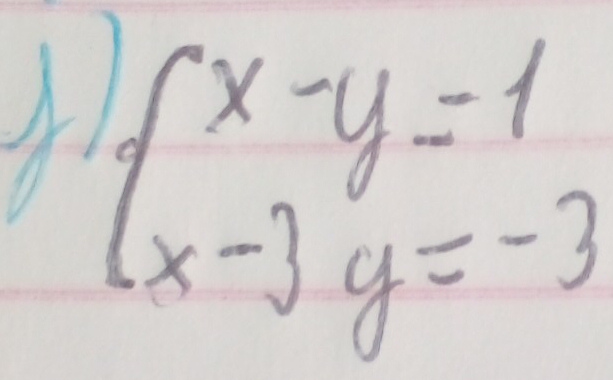 j) x - y = 1
x - 3y = -3